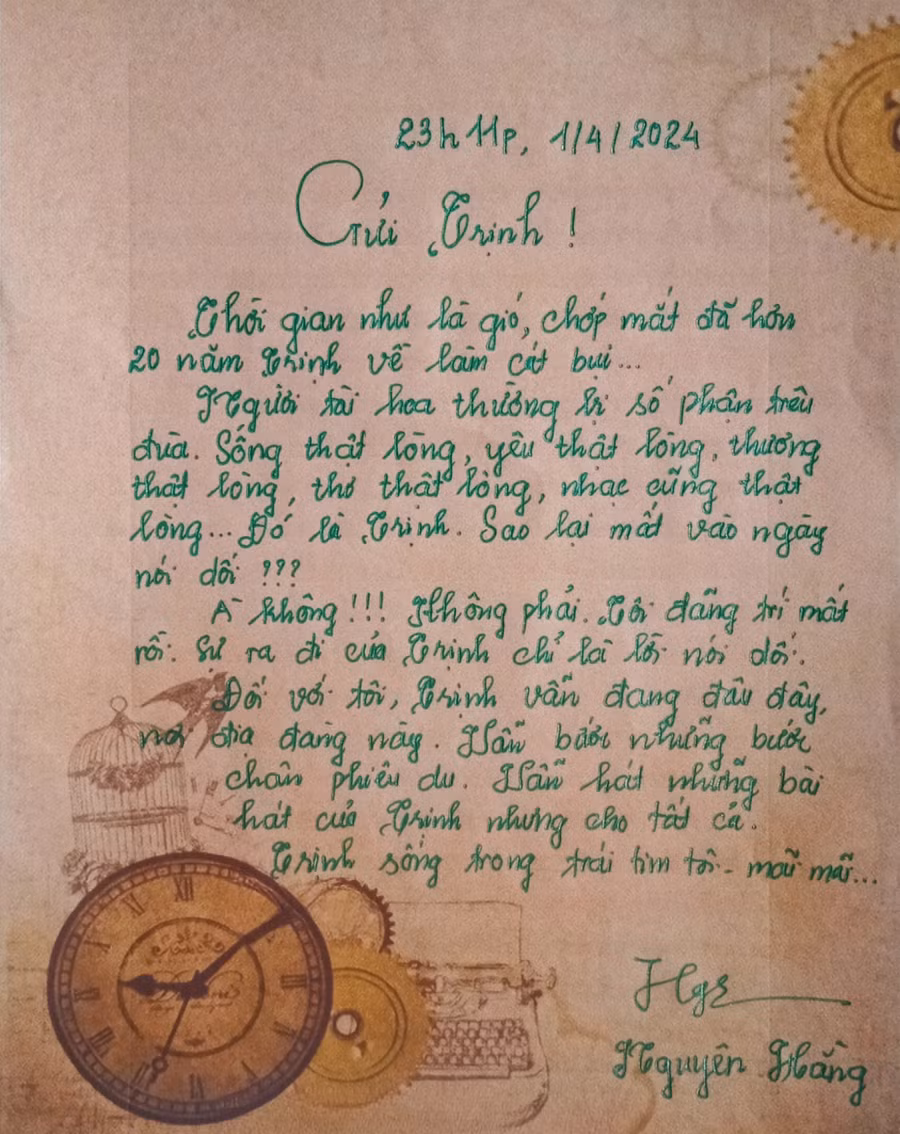 23h 11p, 1/4/2024
Gửi Trịnh !
Thời gian như là gió, chớp mắt đã hơn
20 năm Trịnh về làm cát bụi...
Người tài hoa thường bị số phận trêu
đùa. Sống thật lòng, yêu thật lòng, thương
thật lòng, thơ thật lòng, nhạc cũng thật
lòng... Đó là Trịnh. Sao lại mất vào ngày
nói dối ???
À không !!! Không phải. Tôi đãng trí mất
rồi. Sự ra đi của Trịnh chỉ là lời nói dối.
Đối với tôi, Trịnh vẫn đang đâu đây,
nơi địa đàng này. Vẫn bước những bước
chân phiêu du. Vẫn hát những bài
hát của Trịnh nhưng cho tất cả.
Trịnh sống trong trái tim tôi - mãi mãi...
Nguyên Hằng